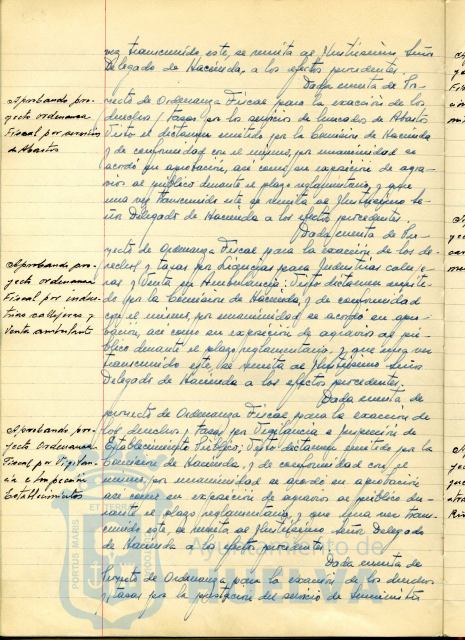 vez transcurrido, este, se remita al Ilustrísimo Señor
Delegado de Hacienda, a los efectos procedentes.
Dada cuenta de Pro-
yecto de Ordenanza Fiscal para la exacción de los
derechos y tasas por los servicios de Mercados de Abastos
Visto el dictamen emitido por la Comisión de Hacienda
y de conformidad con el mismo, por unanimidad se
acordó su aprobación, así como su exposición de agra-
vios al público durante el plazo reglamentario, y que
una vez transcurrido este se remita al Ilustrísimo Se-
ñor Delegado de Hacienda a los efectos procedentes.
Dada cuenta de Pro-
yecto de Ordenanza Fiscal para la exacción de los de-
rechos y tasas por Licencias para Industrias calleje-
ras y Venta en Ambulancia; Visto dictamen emiti-
do por la Comisión de Hacienda, y de conformidad
con el mismo, por unanimidad se acordó su apro-
bación, así como su exposición de agravios al pú-
blico durante el plazo reglamentario, y que una vez
transcurrido este, se remita al Ilustrísimo Señor
Delegado de Hacienda a los efectos procedentes.
Dada cuenta de
proyecto de Ordenanza Fiscal para la exacción de
los derechos y tasas por Vigilancia e inspección de
Establecimiento Público; Visto dictamen emitido por la
Comisión de Hacienda, y de conformidad con el
mismo, por unanimidad se acordó su aprobación
así como su exposición de agravios al público du-
rante el plazo reglamentario, y que una vez trans-
currido este se remita al Ilustrísimo Señor Delegado
de Hacienda a los efectos procedentes.
Dada cuenta de
Proyecto de Ordenanza, para la exacción de los derechos
y tasas por la prestación del servicio de Suministro
Aprobando pro-
yecto ordenanza
Fiscal por servicios
de Abastos
Aprobando pro-
yecto ordenanza
Fiscal por indus-
trias callejeras y
Venta ambulante
Aprobando pro-
yecto Ordenanza
Fiscal por Vigilan-
cia e Inspección
Establecimientos
PORTUS MARIS
ET TERRAE
CUSTODIA
Ayuntamiento de
HUELVA